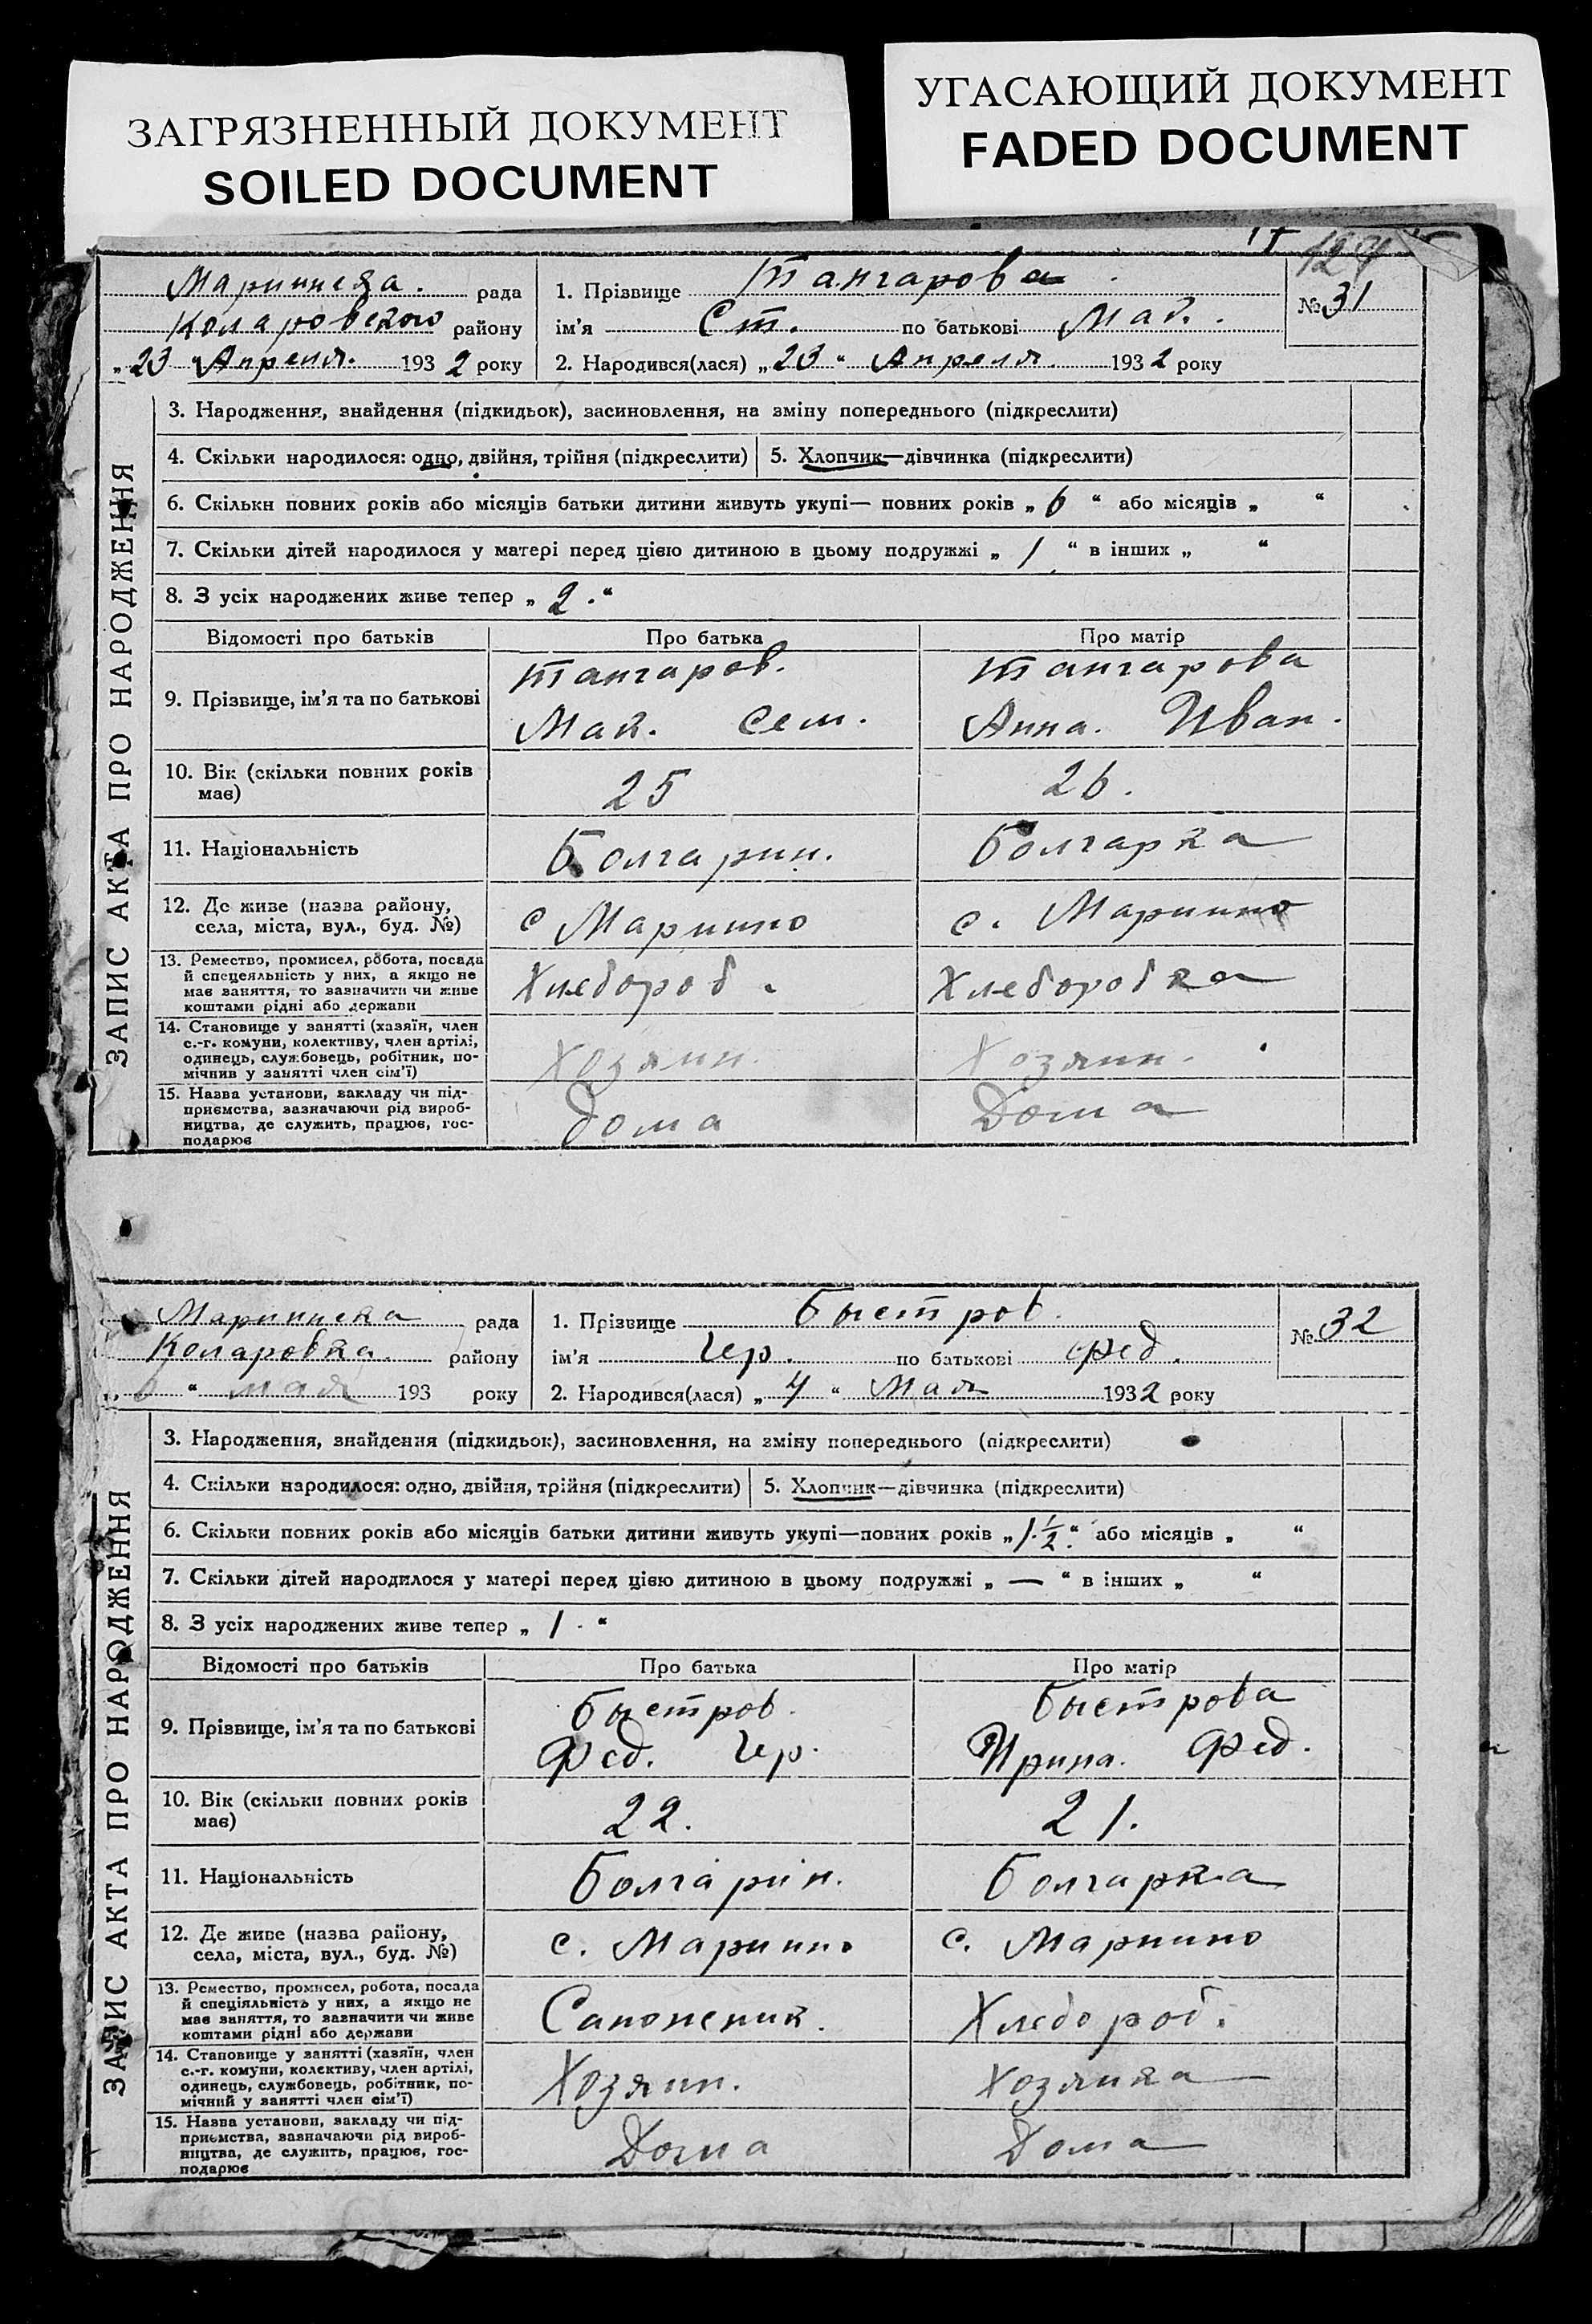 ЗАГРЯЗНЕННЫЙ ДОКУМЕНТ
SOILED DOCUMENT
УГАСАЮЩИЙ ДОКУМЕНТ
FADED DOCUMENT
Мариинска. рада
Коларовского району
„23 “ Апреля. 1932 року
1. Прізвище Тангарова
ім'я Ст. по батькові Мак.
2. Народився(лася) „23 “ Апреля 1932 року
№ 31
ЗАПИС АКТА ПРО НАРОДЖЕННЯ
3. Народження, знайдення (підкидьок), засиновлення, на зміну попереднього (підкреслити)
4. Скільки народилося: одно, двійня, трійня (підкреслити) 5. Хлопчик—дівчинка (підкреслити)
6. Скільки повних років або місяців батьки дитини живуть укупі— повних років „ 6 “ або місяців „ “
7. Скільки дітей народилося у матері перед цією дитиною в цьому подружжі „ 1 “ в інших „ “
8. З усіх народжених живе тепер „ 2. “
Відомості про батьків Про батька Про матір
9. Прізвище, ім'я та по батькові
Тангаров. Мак. Сем.
Тангарова Анна. Иван.
10. Вік (скільки повних років має) 25 26.
11. Національність Болгарин. Болгарка
12. Де живе (назва району, села, міста, вул., буд. №) с Мариино с. Мариино
13. Ремество, промисел, робота, посада
й спецеяльність у них, а якщо не
має заняття, то зазначити чи живе
коштами рідні або держави
Хлебороб. Хлеборобка
14. Становище у занятті (хазяїн, член
с.-г. комуни, колективу, член артілі,
одинець, службовець, робітник, по-
мічнив у занятті член сім'ї)
Хозяин. Хозяин.
15. Назва установи, закладу чи під-
приємства, зазначаючи рід вироб-
ництва, де служить, працює, гос-
подарює
Дома Дома
Мариинска рада
Коларовка. району
“ мая 193 року
1. Прізвище Быстров.
ім'я Гер. по батькові Фед.
2. Народився(лася) „ 4 “ Мая 1932 року
№ 32
ЗАПИС АКТА ПРО НАРОДЖЕННЯ
3. Народження, знайдення (підкидьок), засиновлення, на зміну попереднього (підкреслити)
4. Скільки народилося: одно, двійня, трійня (підкреслити) 5. Хлопчик—дівчинка (підкреслити)
6. Скільки повних років або місяців батьки дитини живуть укупі—повних років „1.½“ або місяців „ “
7. Скільки дітей народилося у матері перед цією дитиною в цьому подружжі „ — “ в інших „ “
8. З усіх народжених живе тепер „ 1. “
Відомості про батьків Про батька Про матір
9. Прізвище, ім'я та по батькові
Быстров. Фед. Гер.
Быстрова Ирина. Фед.
10. Вік (скільки повних років має) 22. 21.
11. Національність Болгарин. Болгарка
12. Де живе (назва району, села, міста, вул., буд. №) с. Мариино с. Мариино
13. Ремество, промисел, робота, посада
й спеціяльність у них, а якщо не
має заняття, то зазначити чи живе
коштами рідні або держави
Сапожник. Хлебороб.
14. Становище у занятті (хазяїн, член
с.-г. комуни, колективу, член артілі,
одинець, службовець, робітник, по-
мічний у занятті член сім'ї)
Хозяин. Хозяика
15. Назва установи, закладу чи під-
приємства, зазначаючи рід вироб-
ництва, де служить, працює, гос-
подарює
Дома Дома